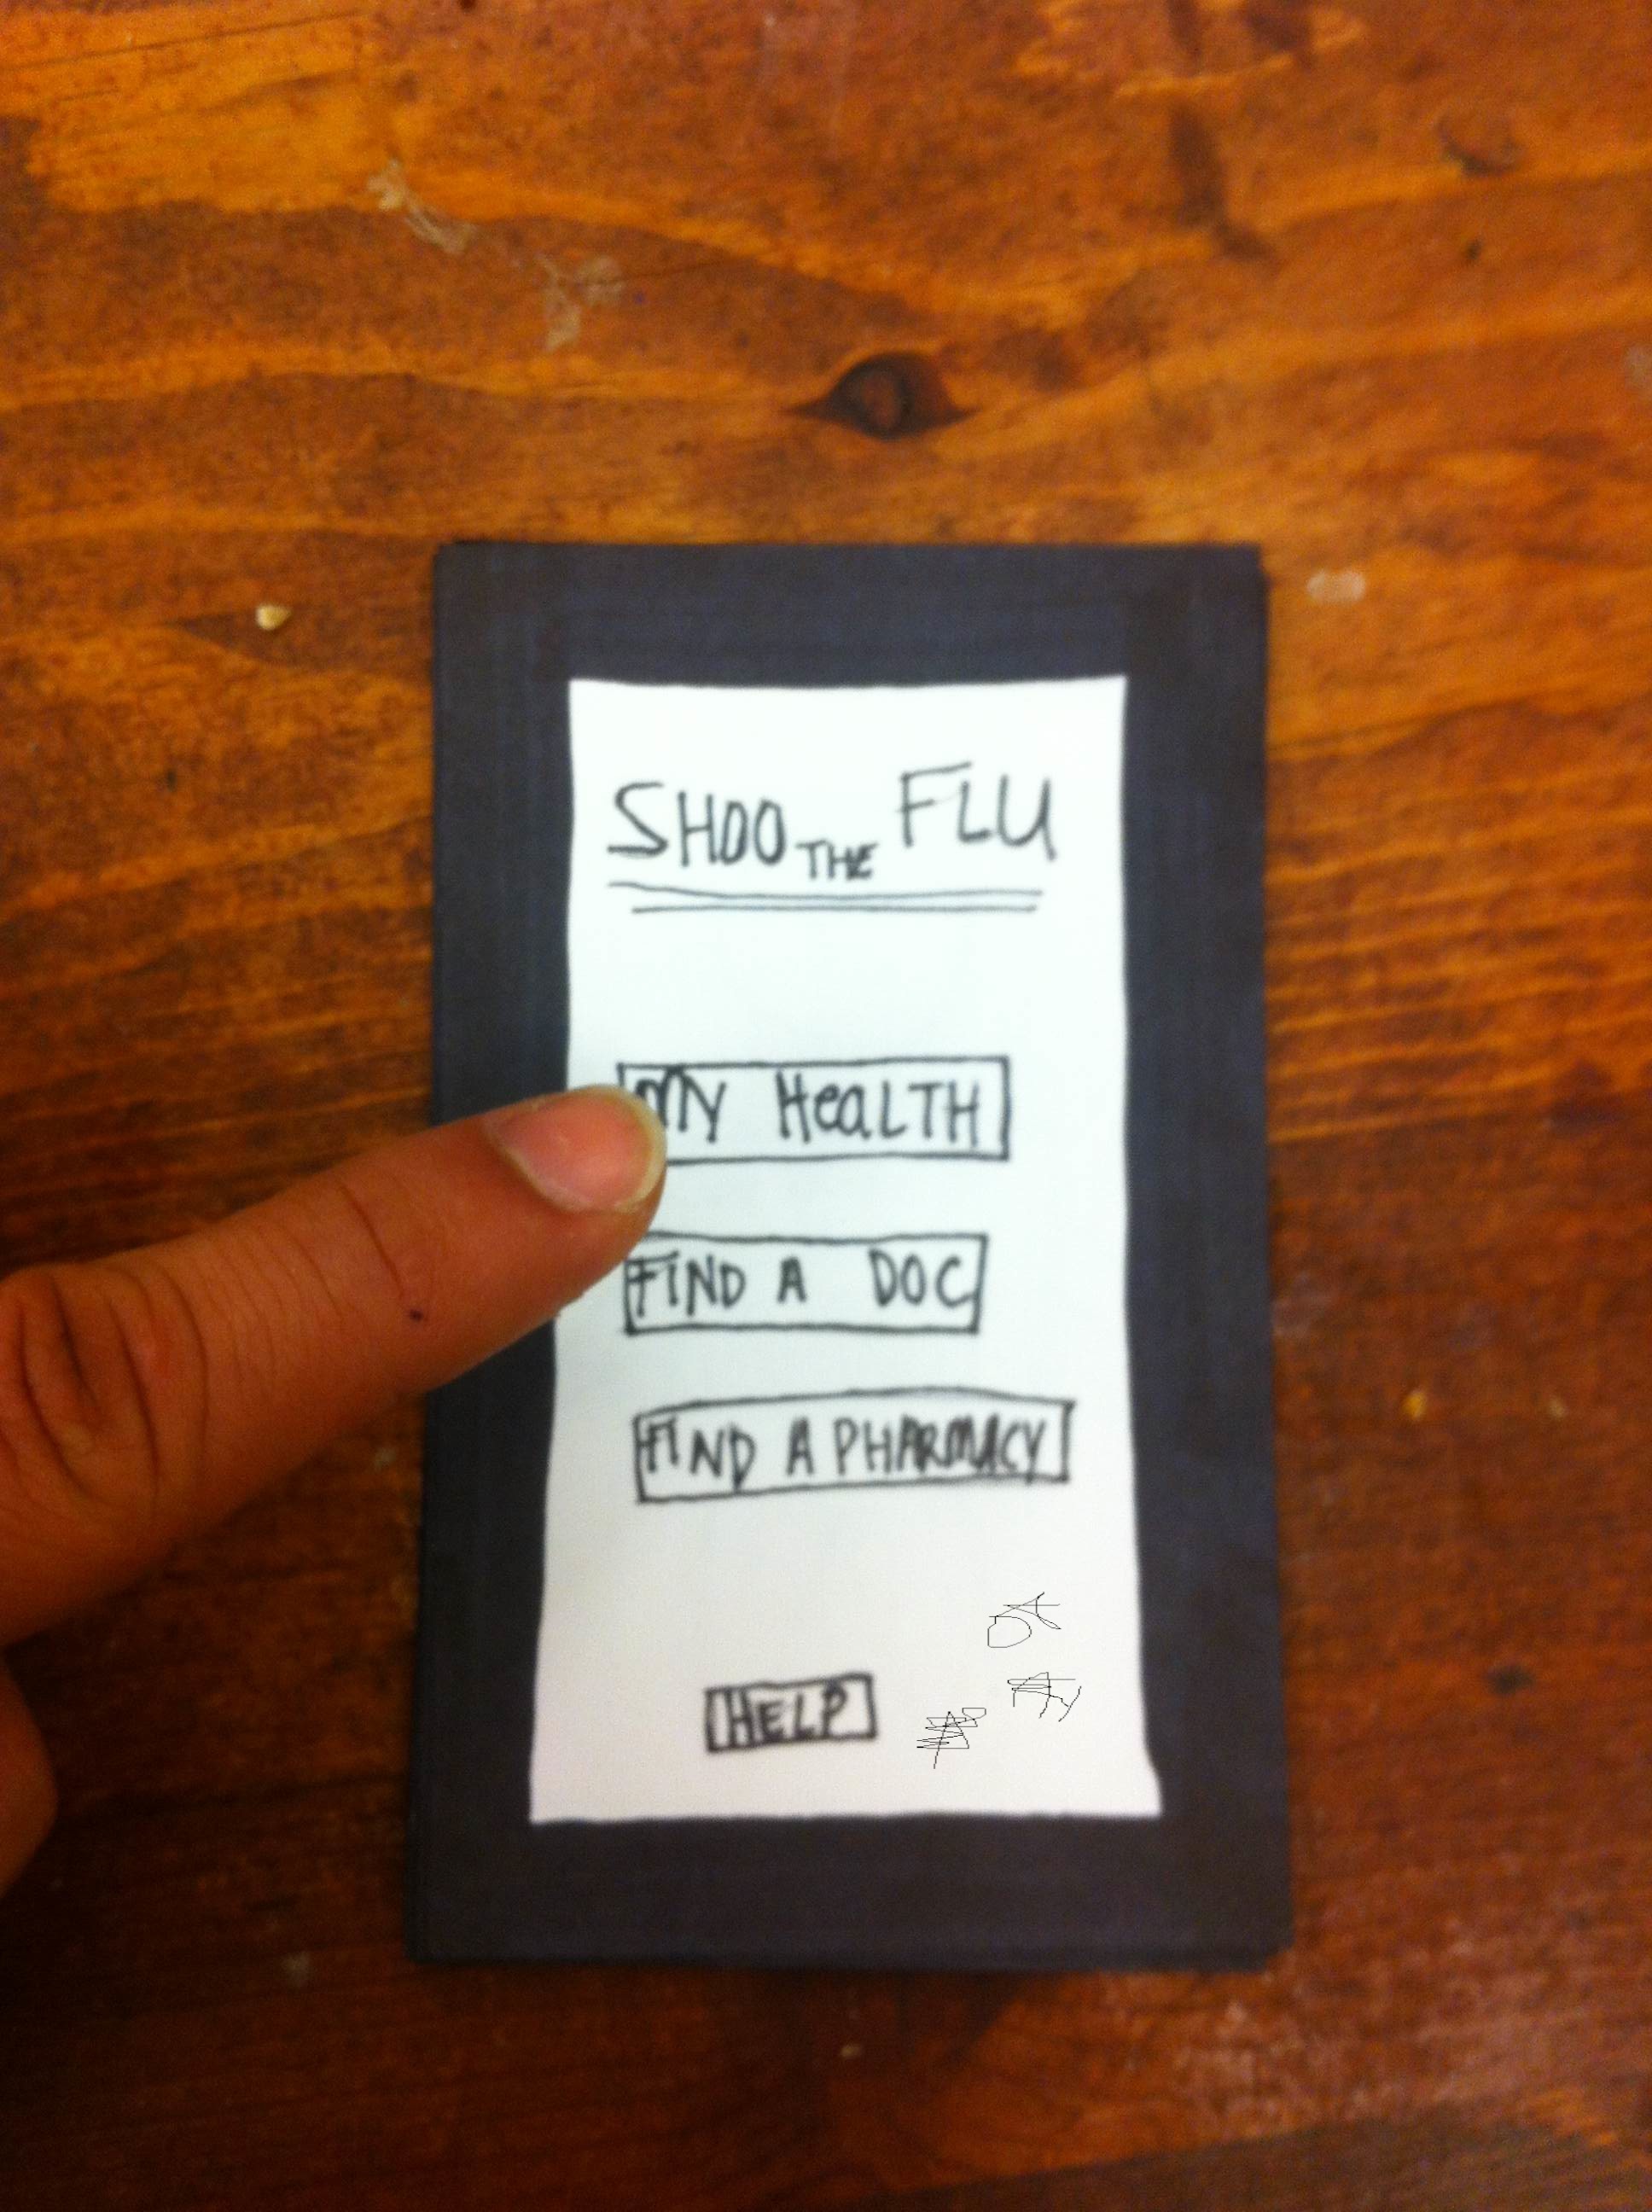 SHOO THE FLU
MY HeaLTH
FIND A DOC
FIND A PHARMACY
HELP